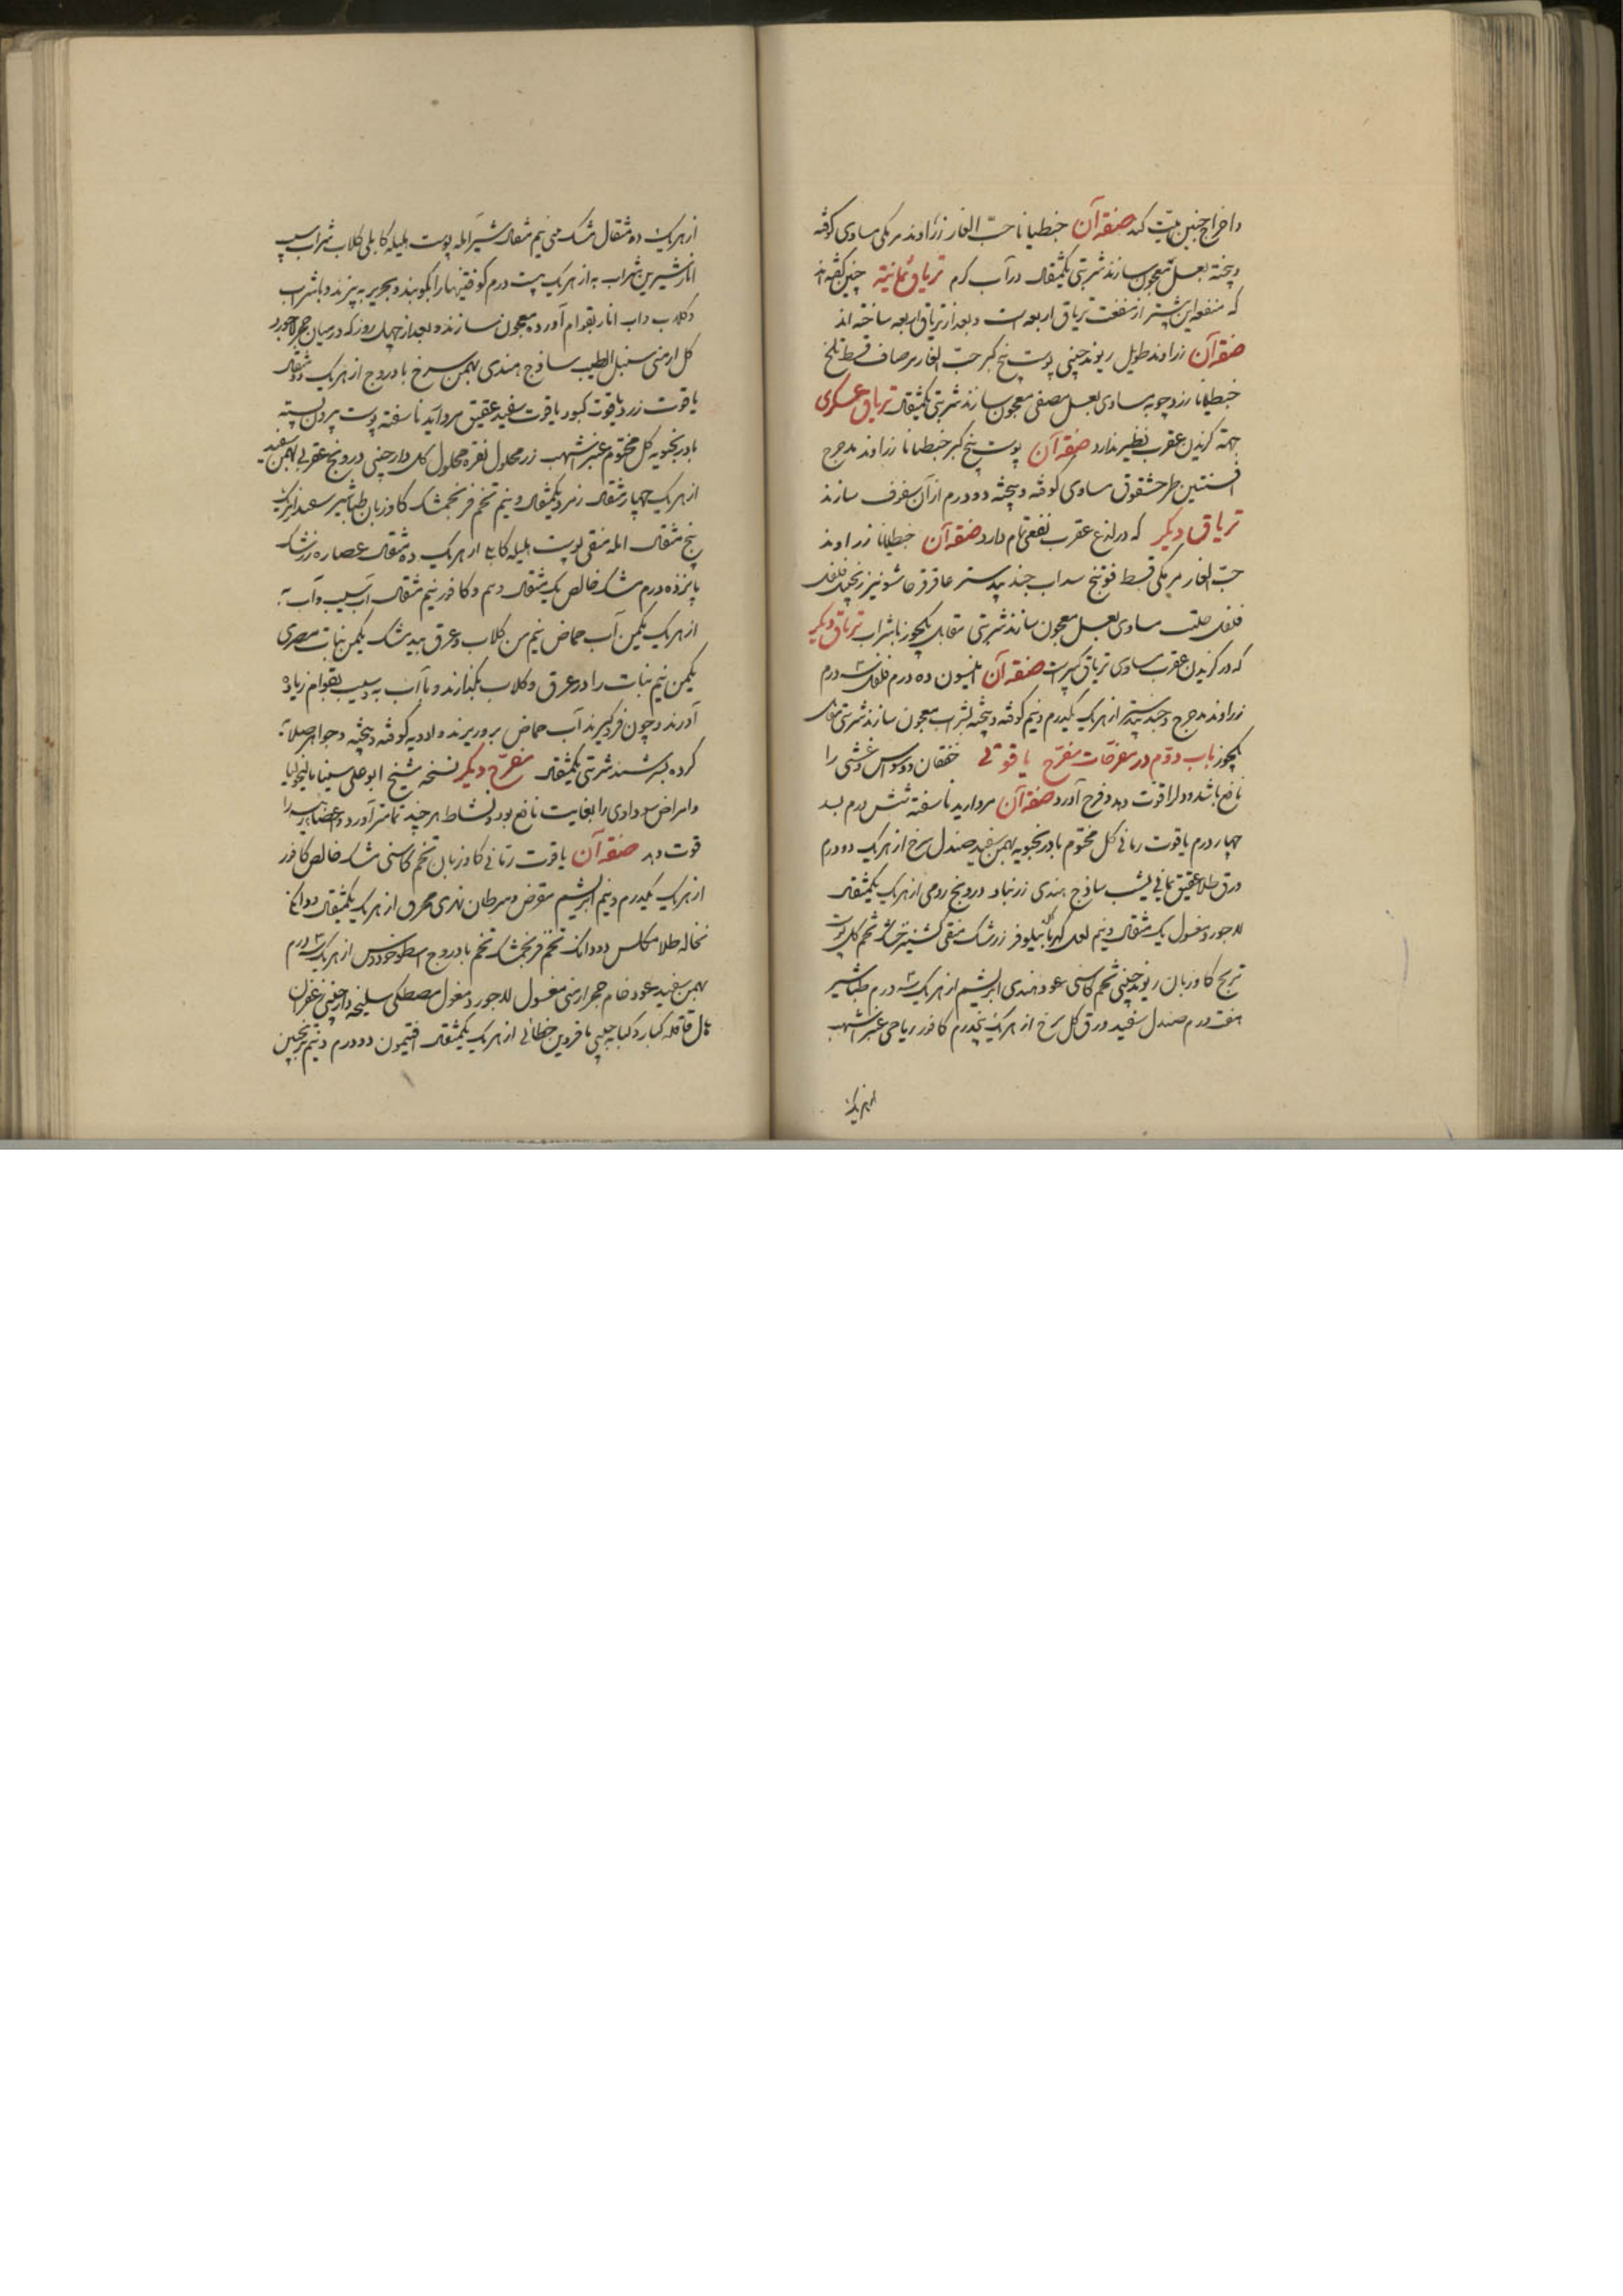 و اخراج جنین میّت کند صفة آن جنطیانا حبّ الغار زراوند مر مکی مساوی کوفته
و بیخته بعسل معجون سازند شربتی یکمثقال در آب گرم تریاق ثمانیه چنین گفته‌اند
که منفعه این بیشتر از منفعت تریاق اربعه است و بعد از تریاق اربعه ساخته‌اند
صفة آن زراوند طویل ریوند چینی پوست بیخ کبر حبّ الغار مر صاف قسط تلخ
جنطیانا زردچوبه مساوی بعسل مصفی معجون سازند شربتی یکمثقال تریاق عسکری
جهة گزیدن عقرب نظیر ندارد صفة آن پوست بیخ کبر جنطیانا زراوند مدحرج
افسنتین طرخشقوق مساوی کوفته و بیخته دو درم از آن سفوف سازند
تریاق دیگر که در لدغ عقرب نفعی تام دارد صفة آن جنطیانا زراوند
حبّ الغار مر مکی قسط فوتنج سداب جندبیدستر عاقرقرحا شونیز زنجبیل فلفل
حلتیت مساوی بعسل معجون سازند شربتی مقابل یکجوز با شراب تریاق دیگر
که در گزیدن عقرب مساوی تریاق کبیر است صفة آن افیون ده درم فلفل سه درم
زراوند مدحرج و جندبیدستر از هر یک یکدرم و نیم کوفته و بیخته بشراب معجون سازند شربتی مقابل
یکجوز باب دوّم در مفرحات مفرّح یاقوتی خفقان و وسواس و غشی را
نافع باشد و دل را قوت دهد و فرح آورد صفة آن مروارید ناسفته شش درم بسد
چهار درم یاقوت رمانی گل مختوم بادرنجبویه بهمن سفید صندل سرخ از هر یک دو درم
ورق طلا عقیق یمانی یشب ساذج هندی زرنباد درونج رومی از هر یک یکمثقال
لاجورد مغسول یک مثقال و نیم لعل کهربا نیلوفر زرشک منقی گشنیز خشک تخم گل پوست
ترنج گاوزبان ریوند چینی تخم کاسنی عود هندی ابریشم از هر یک سه درم طباشیر
هفت درم صندل سفید ورق گل سرخ از هر یک پنجدرم کافور ریاحی عنبر اشهب
از هر یک
از هر یک ده مثقال مشک نیم مثقال شیر املج پوست هلیله کابلی گلاب شراب سیب
انار شیرین شراب به از هر یک بیست درم کوفتنیها را بکوبند و بحریر به بیزند و با شراب
و گلاب و آب انار بقوام آورده معجون سازند و بعد از چهل روز که در میان جو حجر لاجورد
گل ارمنی سنبل الطیب ساذج هندی بهمن سرخ بادروج از هر یک دو مثقال
یاقوت زرد یاقوت کبود یاقوت سفید عقیق مروارید ناسفته پوست بیرون پسته
بادرنجبویه گل مختوم عنبر اشهب زر محلول نقره محلول گل دارچینی درونج عقربی بهمن سفید
از هر یک چهار مثقال زمرد یکمثقال و نیم تخم فرنجمشک گاوزبان طباشیر سعد از هر یک
پنج مثقال امله منقی پوست هلیله کابلی از هر یک ده مثقال عصاره زرشک
پانزده درم مشک خالص یک مثقال و نیم و کافور نیم مثقال آب سیب و آب به
از هر یک یکمن آب حماض نیم من گلاب و عرق بیدمشک یکمن نبات مصری
یکمن نیم نبات را در عرق و گلاب بگذارند و با آب به و سیب بقوام زیاده
آورند و چون فرو گیرند آب حماض برو ریزند و ادویه کوفته و بیخته و جواهر صلایه
کرده بسرشند شربتی یکمثقال مفرّح دیگر نسخه شیخ ابو علی سینا مالیخولیا
و امراض سوداوی را بغایت نافع بود و نشاط هر چند تمامتر آورد و اعضاء رئیسه را
قوت دهد صفة آن یاقوت رمّانی گاوزبان تخم کاسنی مشک خالص کافور
از هر یک یکدرم و نیم ابریشم مقرض و سرطان نهری محرق از هر یک یکمثقال و دو دانگ
نخاله طلا مکلس دو دانگ تخم فرنجمشک تخم بادروج اسطوخودوس از هر یک سه درم
بهمن سفید عود خام حجر ارمنی مغسول لاجورد مغسول مصطکی سلیخه دارچینی زعفران
هال قاقله کبار و کبابه چینی خطائی از هر یک یکمثقال افتیمون دو درم و نیم ترنجبین